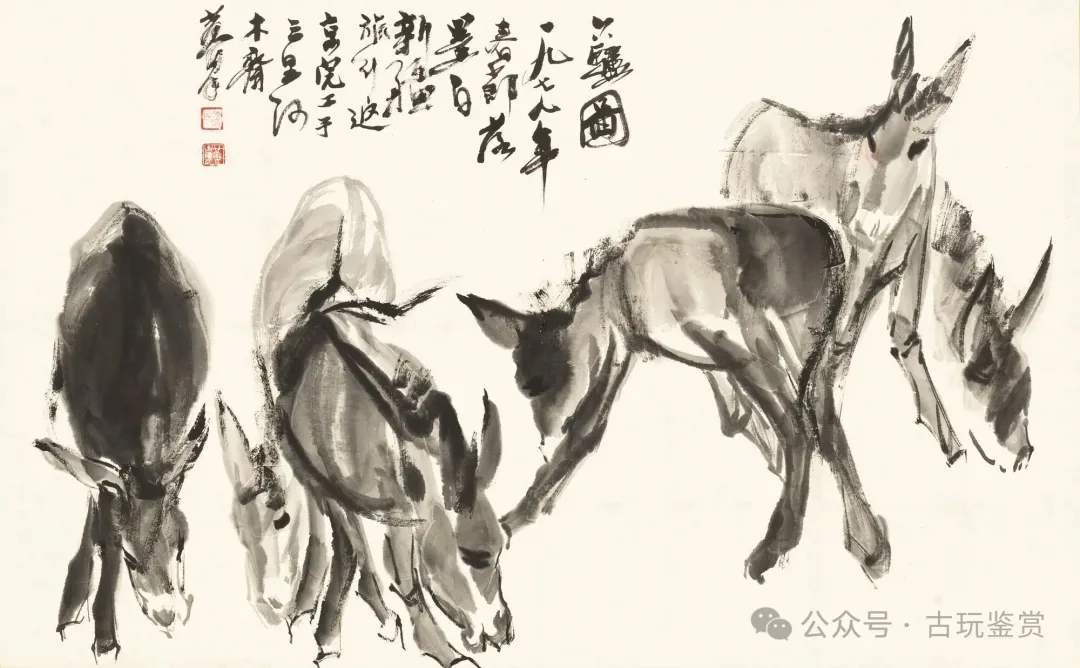 六驢圖
一九七九年
春節落
墨自
新疆
旅行返
京完工于
三里河
木齋
黄胄
公众号 · 古玩鉴赏